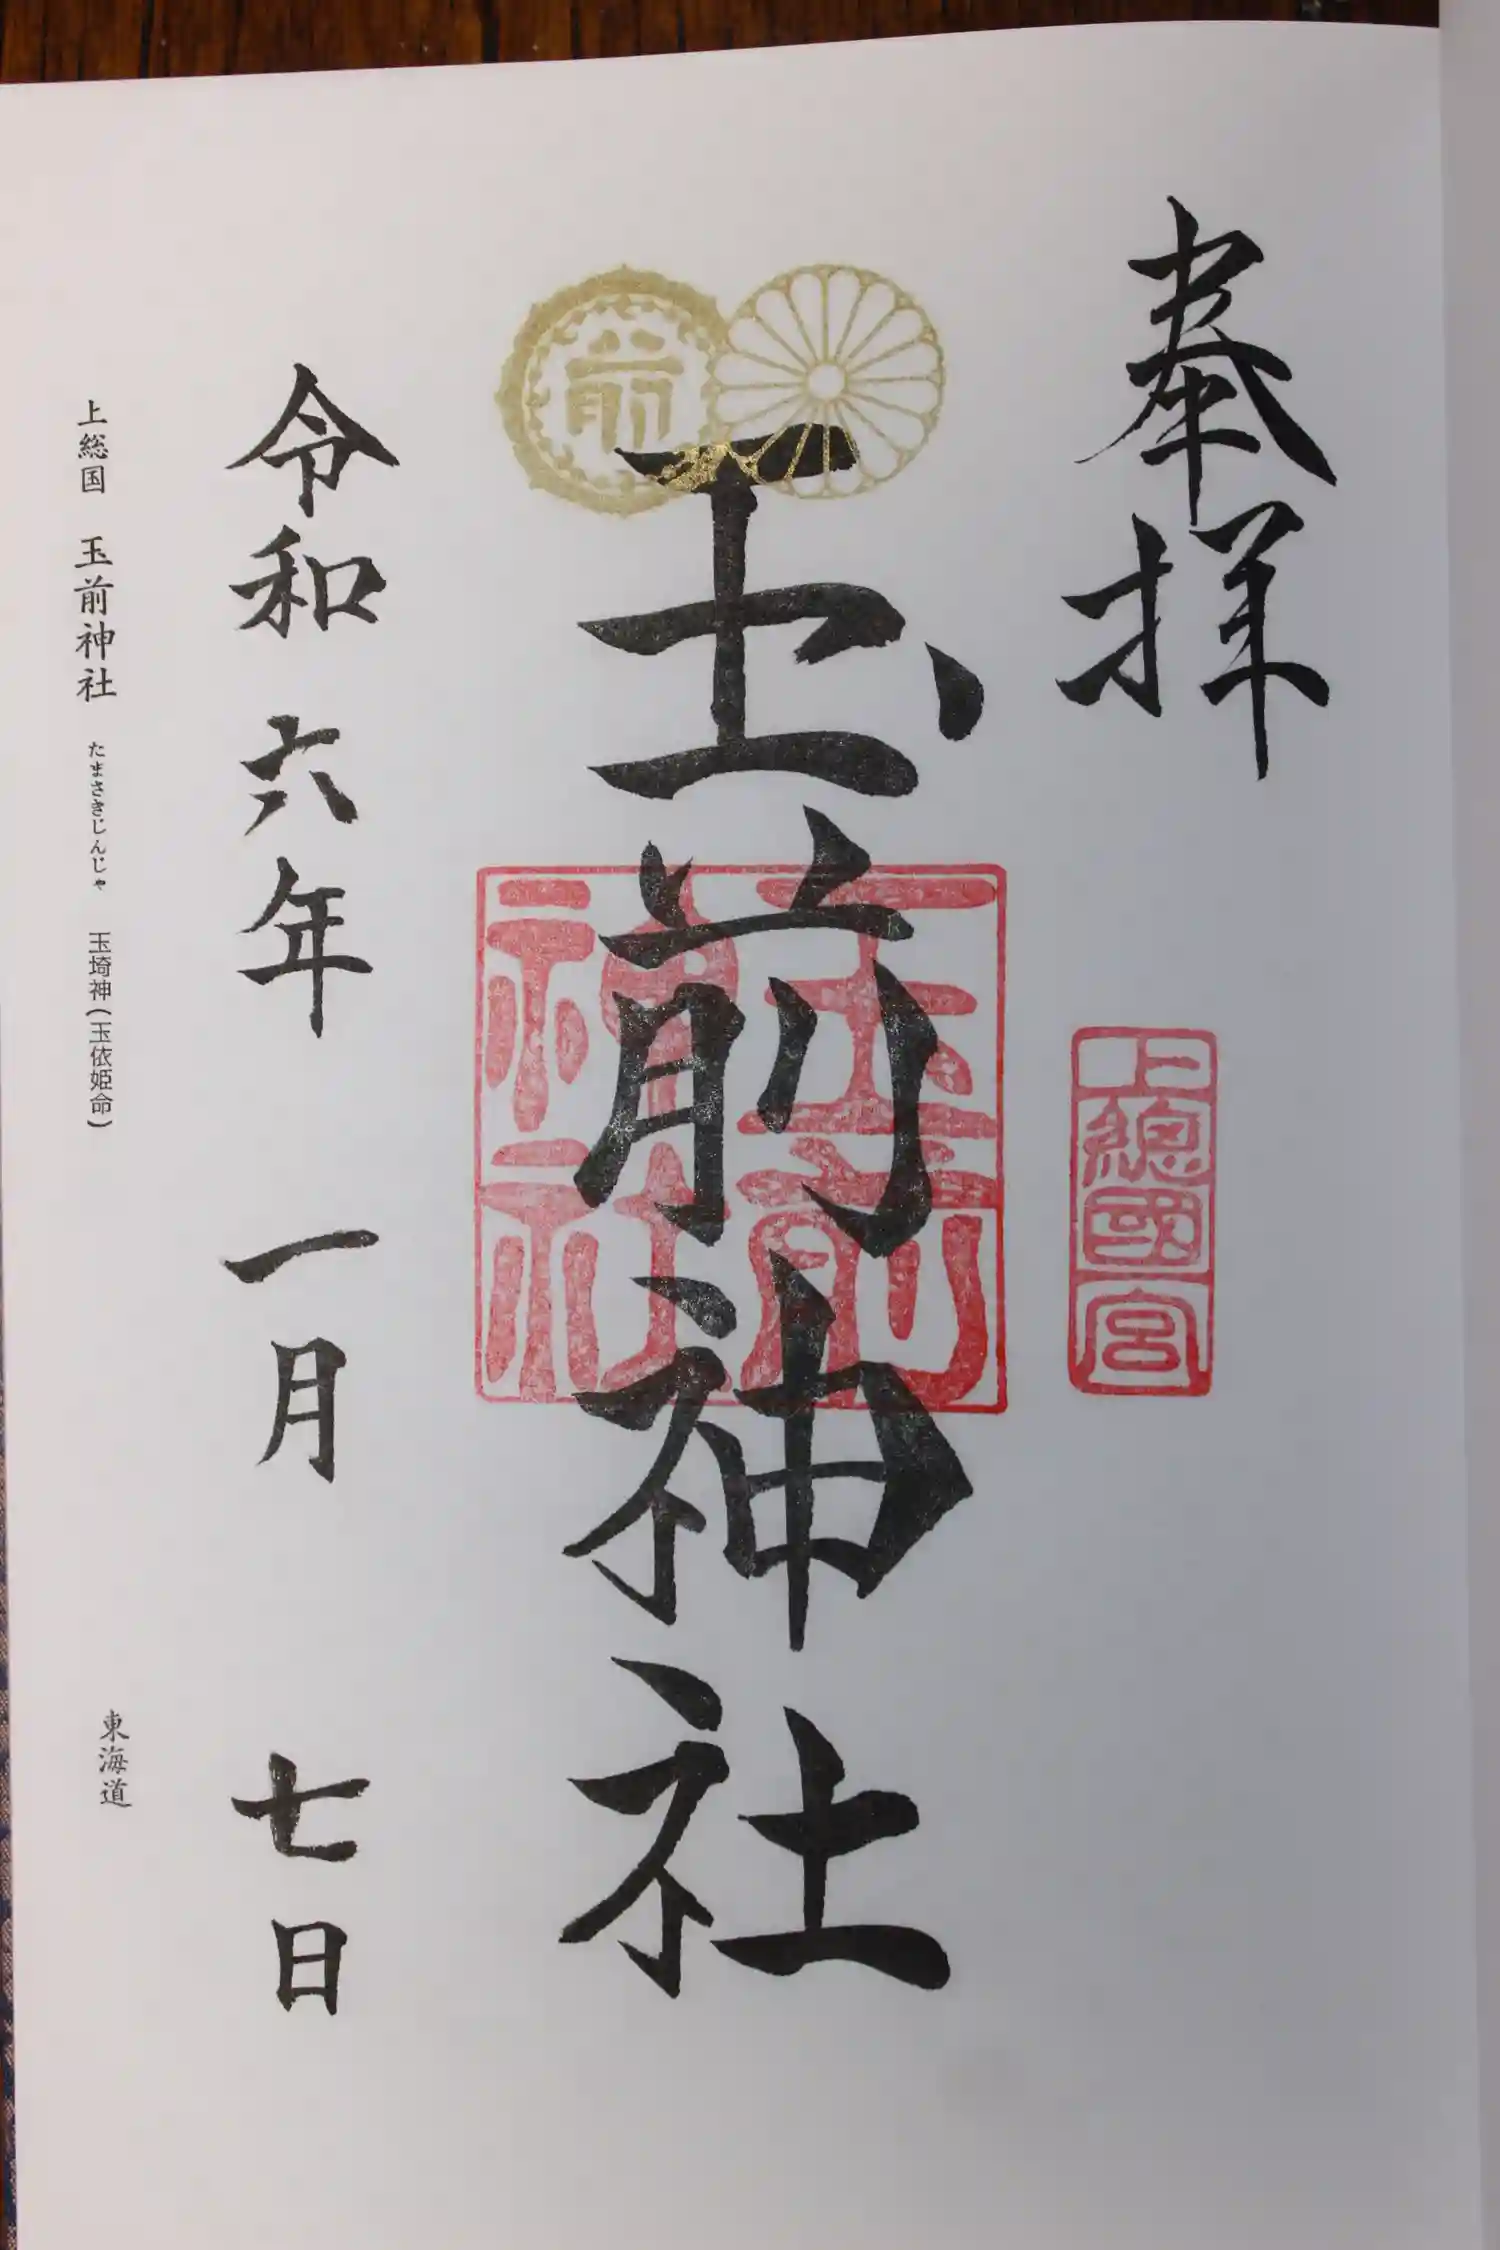 奉拝
上總國一宮
前
玉前神社
玉前神社
令和六年一月七日
上総国 玉前神社 たまさきじんじゃ 玉埼神(玉依姫命)
東海道